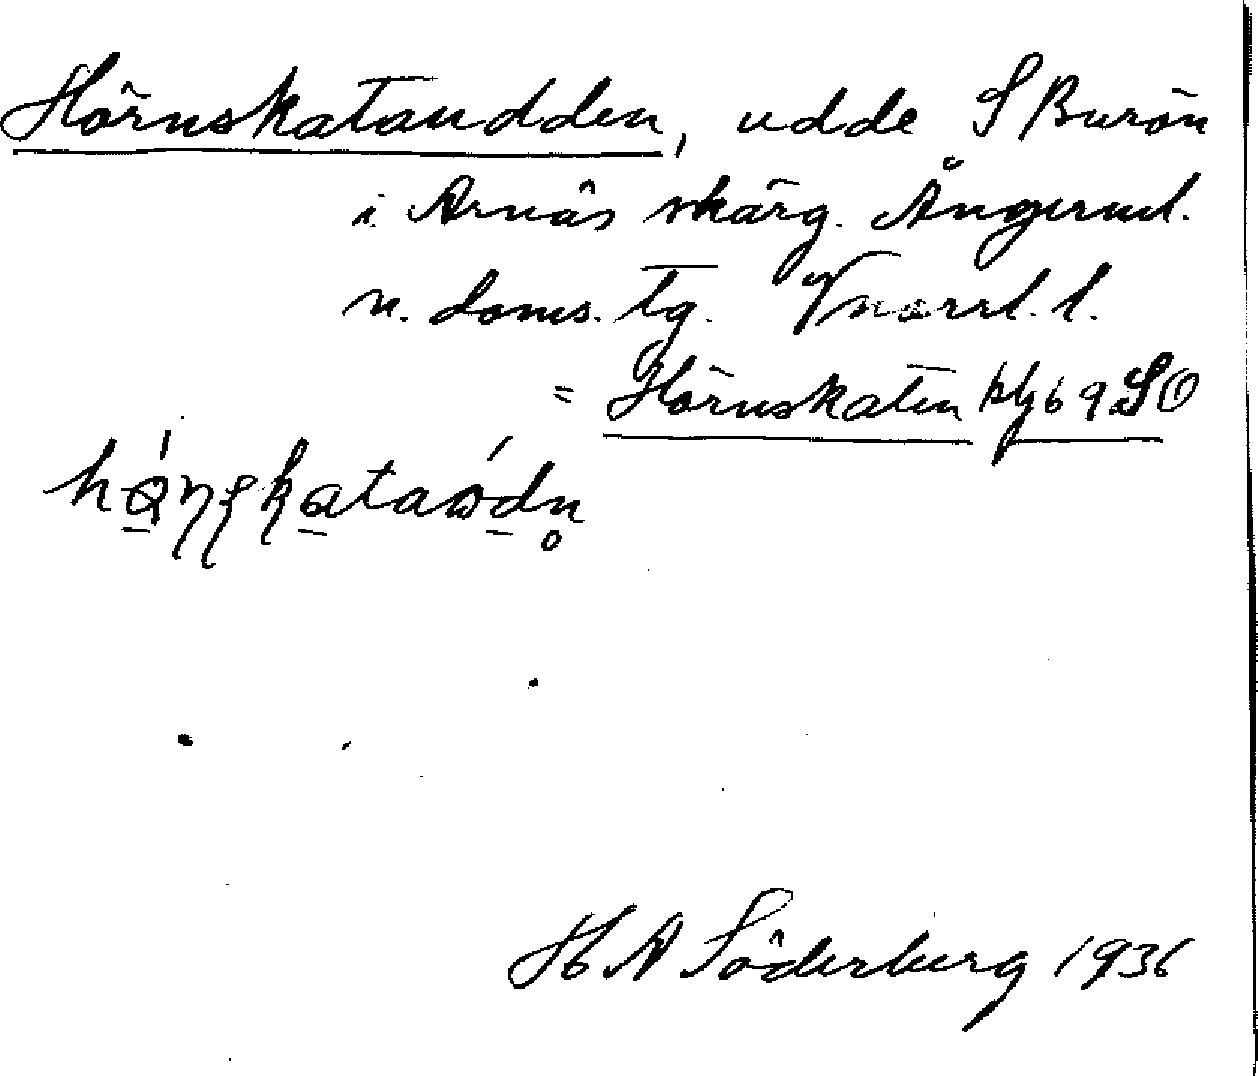 Hörnskataudden, udde S Burön
i Arnäs skärg. Ångerml.
n. doms. tg. Vnorrl. l.
= Hörnskaten blg 69 SO
H A Söderberg 1936